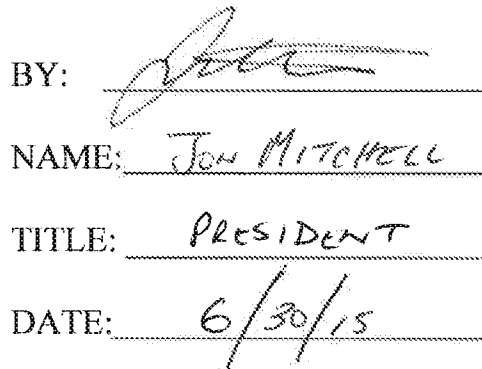 BY:
NAME: JON MITCHELL
TITLE: PRESIDENT
DATE: 6/30/15